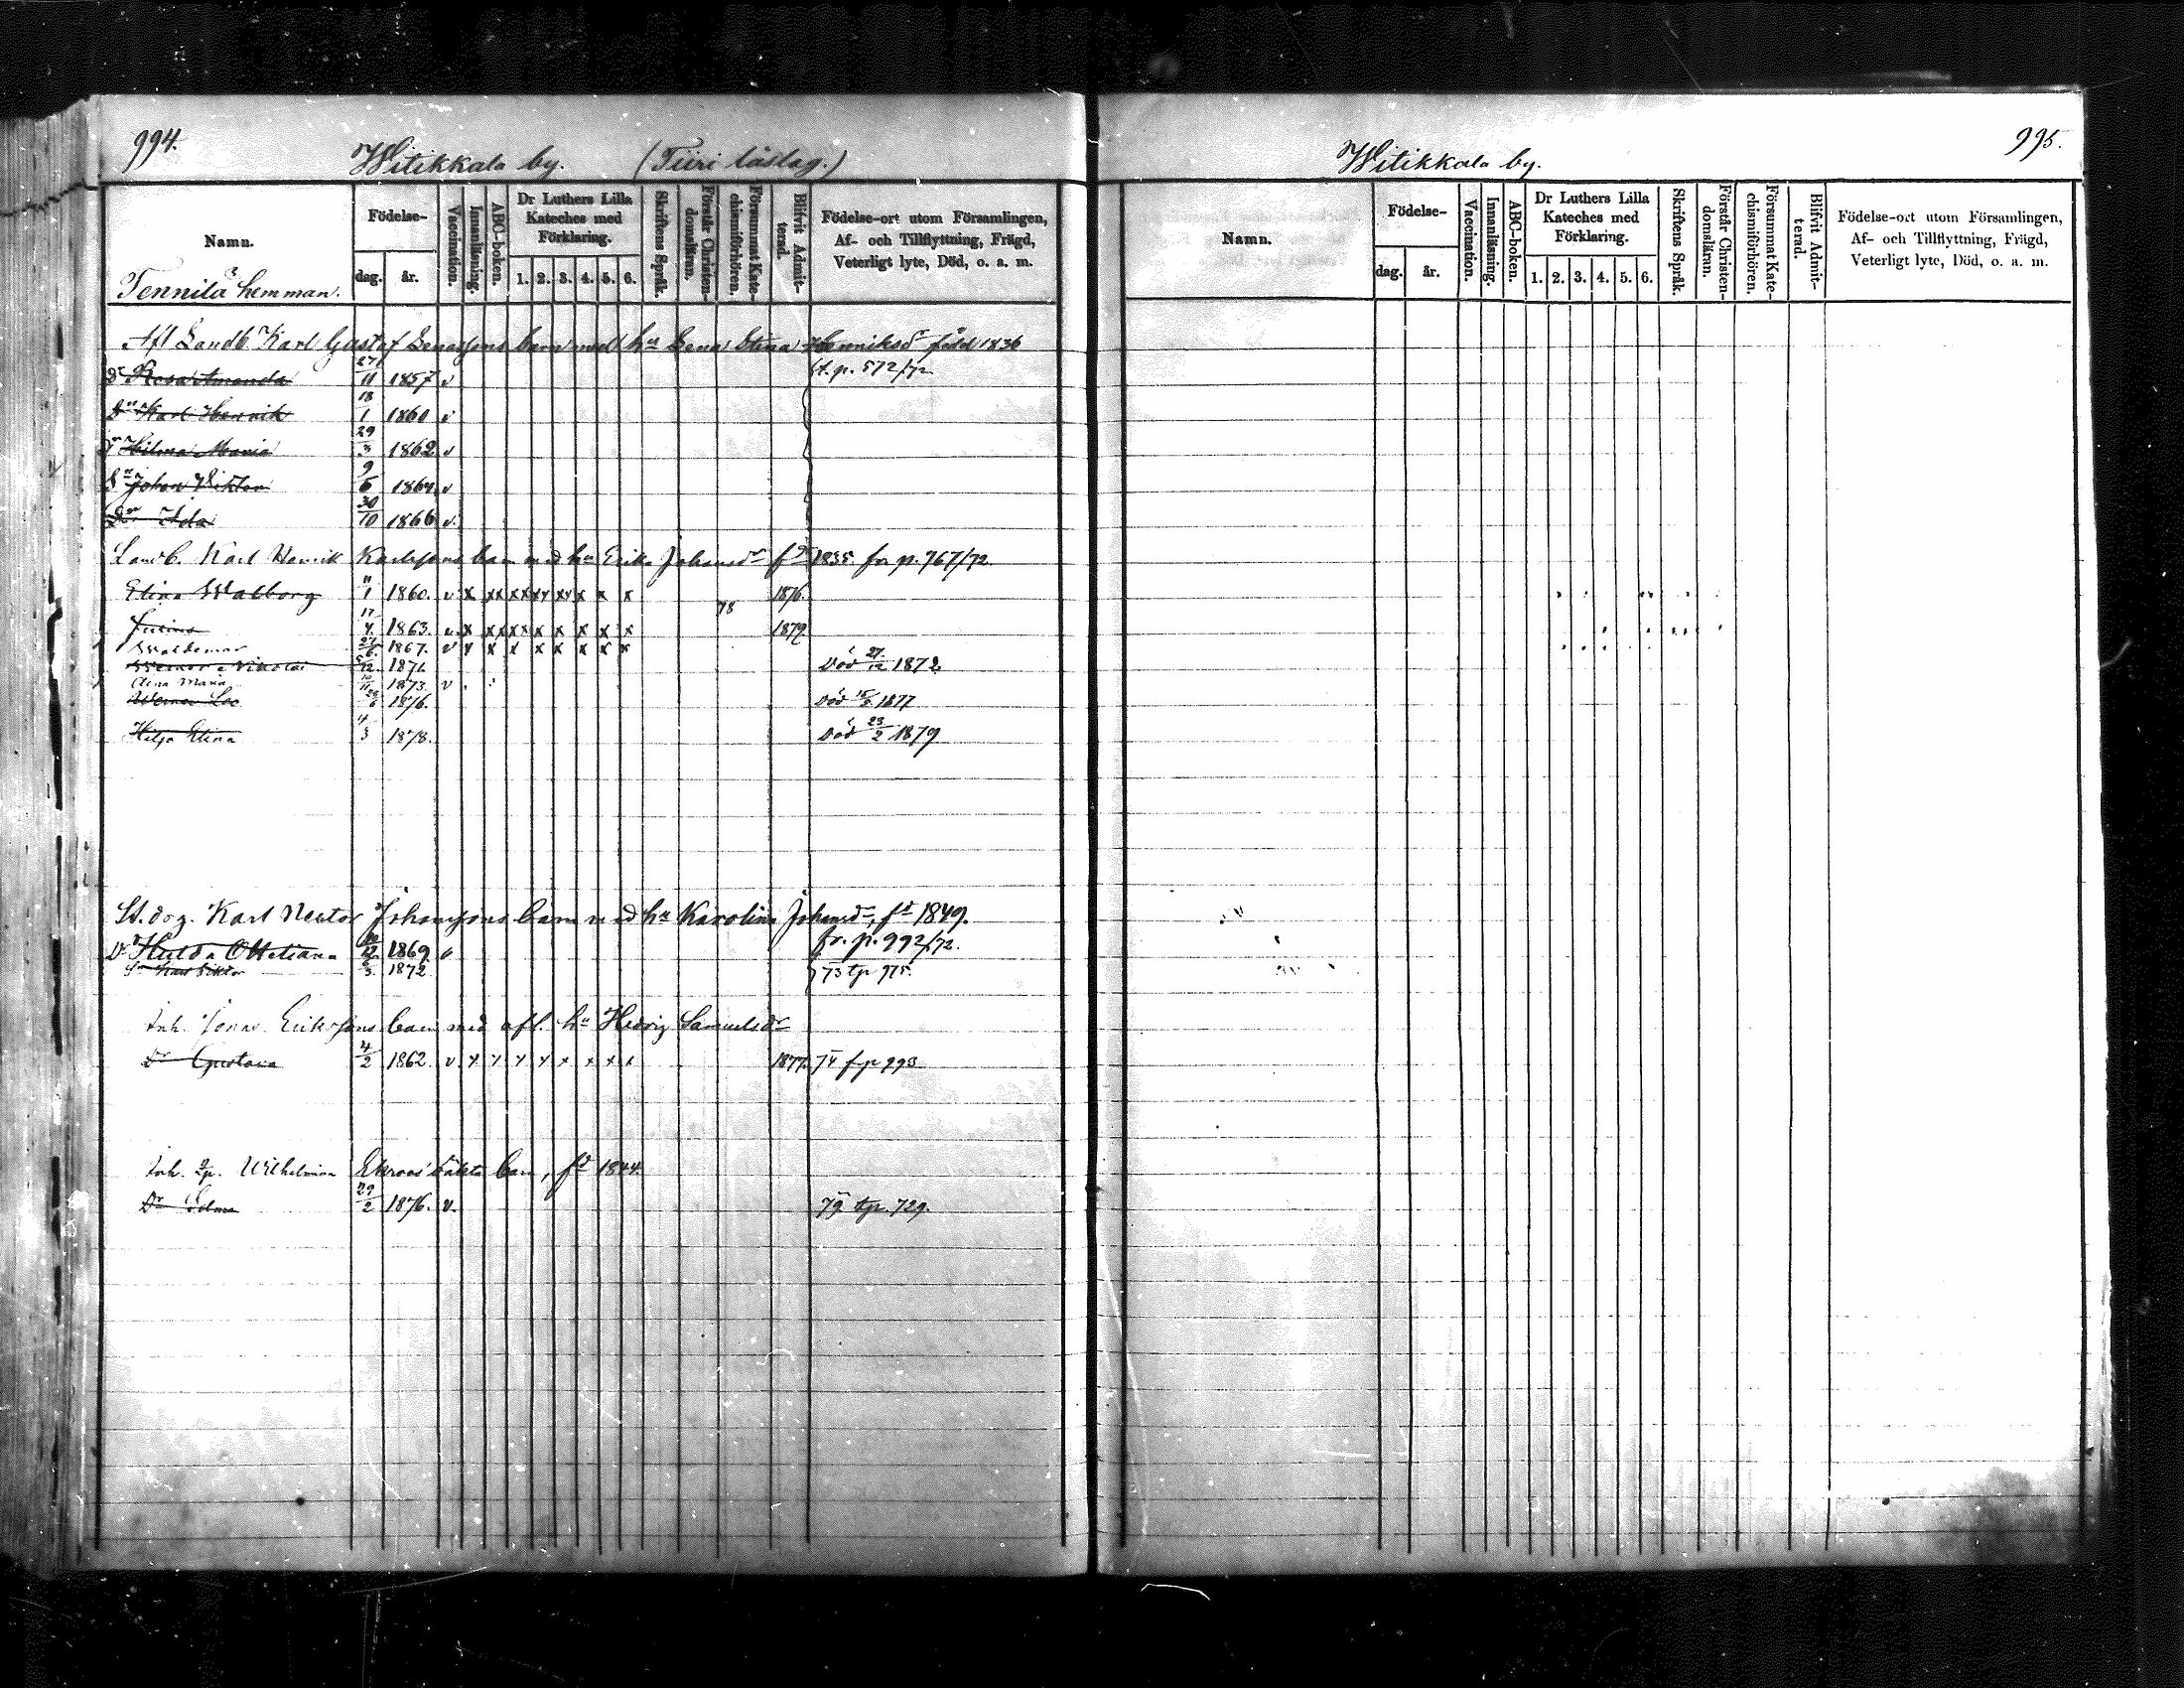 994.
Witikkala by. (Tiiri läslag.)
Namn.
Födelse-
dag. år.
Vaccination.
Innanläsning.
ABC-boken.
Dr Luthers Lilla Kateches med Förklaring.
1. 2. 3. 4. 5. 6.
Skriftens Språk.
Förstår Christendomsläran.
Försummat Katechismiförhören.
Blifvit Admitterad.
Födelse-ort utom Församlingen, Af- och Tillflyttning, Frägd, Veterligt lyte, Död, o. a. m.
Tennilä hemman.
Afl Landb Karl Gustaf barn med hu Lena Stina Henriksdr född 1836
Dr Rosa Amanda 27/11 1857 v t. p. 572/72
Sn Karl Henrik 18/1 1860 v
Dr Hilma Maria 29/3 1862 v
Sn Johan Viktor 9/6 1864 v
Dr Ida 30/10 1866 v.
Landb. Karl Henrik Karlssons barn med hu Erika Johansdr fd 1835. fr p. 767/72
Elina Walborg 11/1 1860. v x xx xx xx xx x x x 1876.
78
17/4 1863. v. x xx xx x x x x x 1879.
Waldemar 1867. v x x x x x x x x
Nikolai 1871. Död 27/12 1872
Maria 1873. v
1876. Död 15/5 1877
Hilja Elina 4/3 1878. Död 23/2 1879
St. dog. Karl Nestor Johanssons barn med hu Karolina Johansdr, fd 1849.
fr. p. 992/72.
Dr Hulda Ottiliana 1869 v
Sn Karl Viktor 6/3 1872. 73 tp 975.
Inh. Jonas Erikssons barn med afl. hu Hedvig Samuelsdr
Dr Gustava 4/2 1862. v x x x x x x x x 1877. 74 f p 993
Inh. Wilhelmina Ekroos oäkta barn, fd 1844.
Dr Selma 29/2 1876. v. 79 tp. 729.
995.
Witikkala by.
Namn.
Födelse-
dag. år.
Vaccination.
Innanläsning.
ABC-boken.
Dr Luthers Lilla Kateches med Förklaring.
1. 2. 3. 4. 5. 6.
Skriftens Språk.
Förstår Christendomsläran.
Försummat Katechismiförhören.
Blifvit Admitterad.
Födelse-ort utom Församlingen, Af- och Tillflyttning, Frägd, Veterligt lyte, Död, o. a. m.